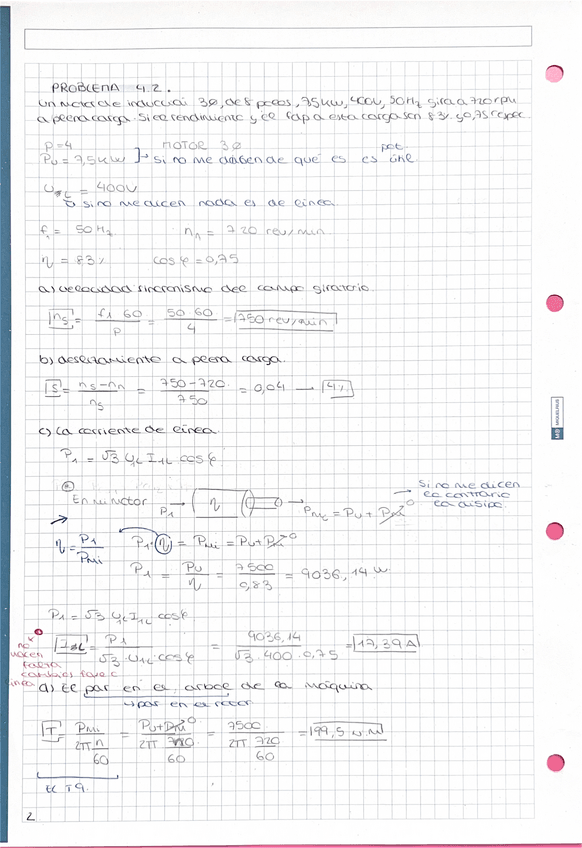 PROBLEMA 4.2.
Un motor de inducción 3Ø, de 8 polos, 7,5kW, 400V, 50Hz gira a 720 rpm
a plena carga. Si el rendimiento y el fdp a esta carga son 83% y 0,75 respec.
p=4 MOTOR 3Ø
Pu = 7,5kW → si no me dicen de qué es es pot. útil.
U1L = 400V
→ si no me dicen nada es de línea.
f1 = 50Hz n = 720 rev/min.
η = 83% cos φ = 0,75
a) velocidad sincronismo del campo giratorio.
ns = f1 60 / p = 50·60 / 4 = 750 rev/min
b) deslizamiento a plena carga.
S = ns-nn / ns = 750-720 / 750 = 0,04 → 4%
c) La corriente de línea.
P1 = √3 U1L I1L cos φ
En mi motor P1 → η → Pmi = Pu + Pm → 0
→ Si no me dicen
lo contrario
la disipo.
η = P1 / Pmi P1·η = Pmi = Pu + Pm → 0
P1 = Pu / η = 7500 / 0,83 = 9036,14 W.
P1 = √3 U1L I1L cos φ
I1L = P1 / √3·U1L·cos φ = 9036,14 / √3·400·0,75 = 17,39A
no
hacen
falta
d) El par en el árbol de la máquina
→ par en el rotor
T = Pmi / 2π n/60 = Pu + Pm → 0 / 2π 720/60 = 7500 / 2π 720/60 = 199,5 N.M
2
MIQUELRIUS